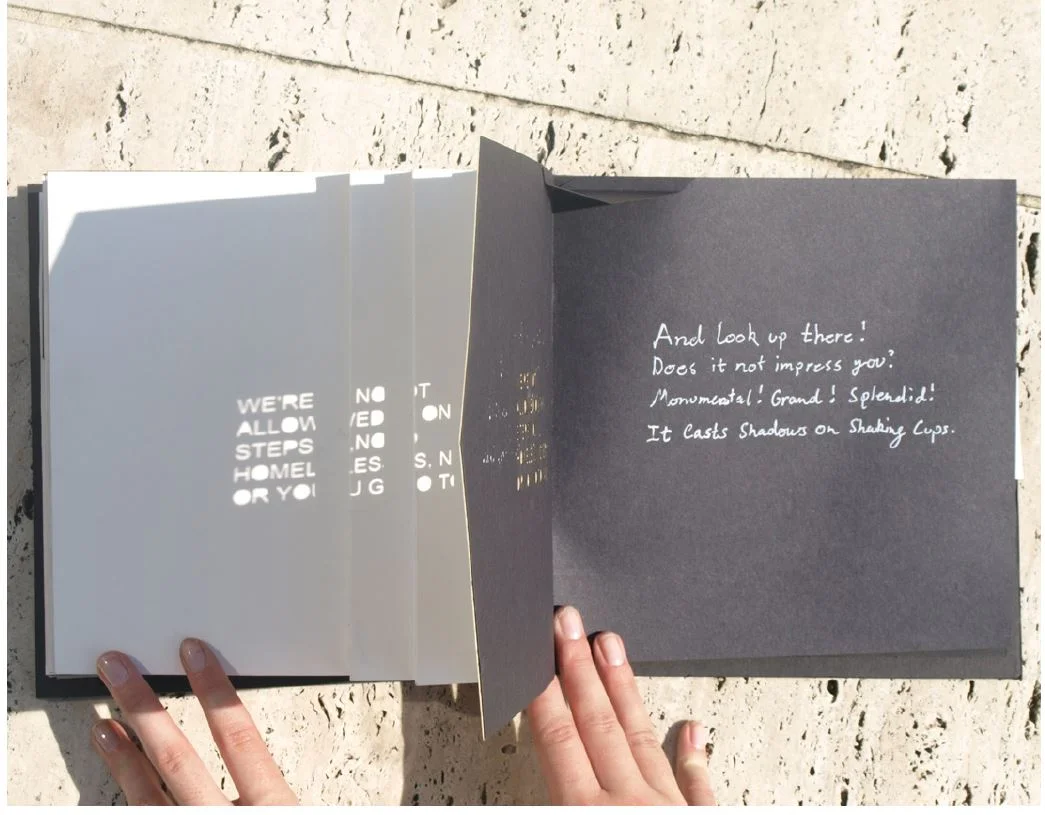 WE'RE NOT
ALLOWED ON
STEPS NO
HOMELESS,
OR YOU GO TO
And look up there!
Does it not impress you?
Monumental! Grand! Splendid!
It Casts Shadows on Shaking Cups.